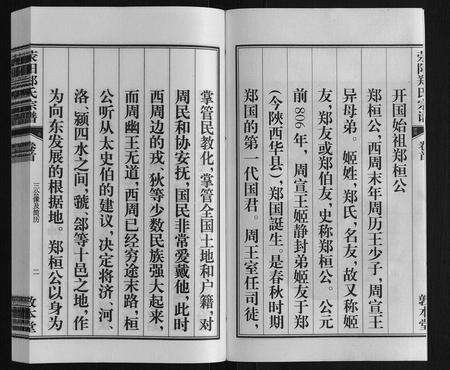 荥阳郑氏宗谱
卷首
开国始祖郑桓公
郑桓公，西周末年周历王少子，周宣王
异母弟。姬姓，郑氏，名友，故又称姬
友，郑友或郑伯友，史称郑桓公。公元
前806年，周宣王姬静封弟姬友于郑
（今陕西华县），郑国誕生—是春秋时期
郑国的第一代国君。周王室任司徒，
敦本堂
掌管民教化，掌管全国土地和户籍，对
周民和协安抚，国民非常爱戴他，此时
西周边的戎、狄等少数民族强大起来，
而周幽王无道，西周已经穷途末路，桓
公听从太史伯的建议，决定将济、河、
洛、颍四水之间，虢、郐等十邑之地，作
为向东发展的根据地。郑桓公以身为
荥阳郑氏宗谱
卷首
三公像及简历
二
敦本堂